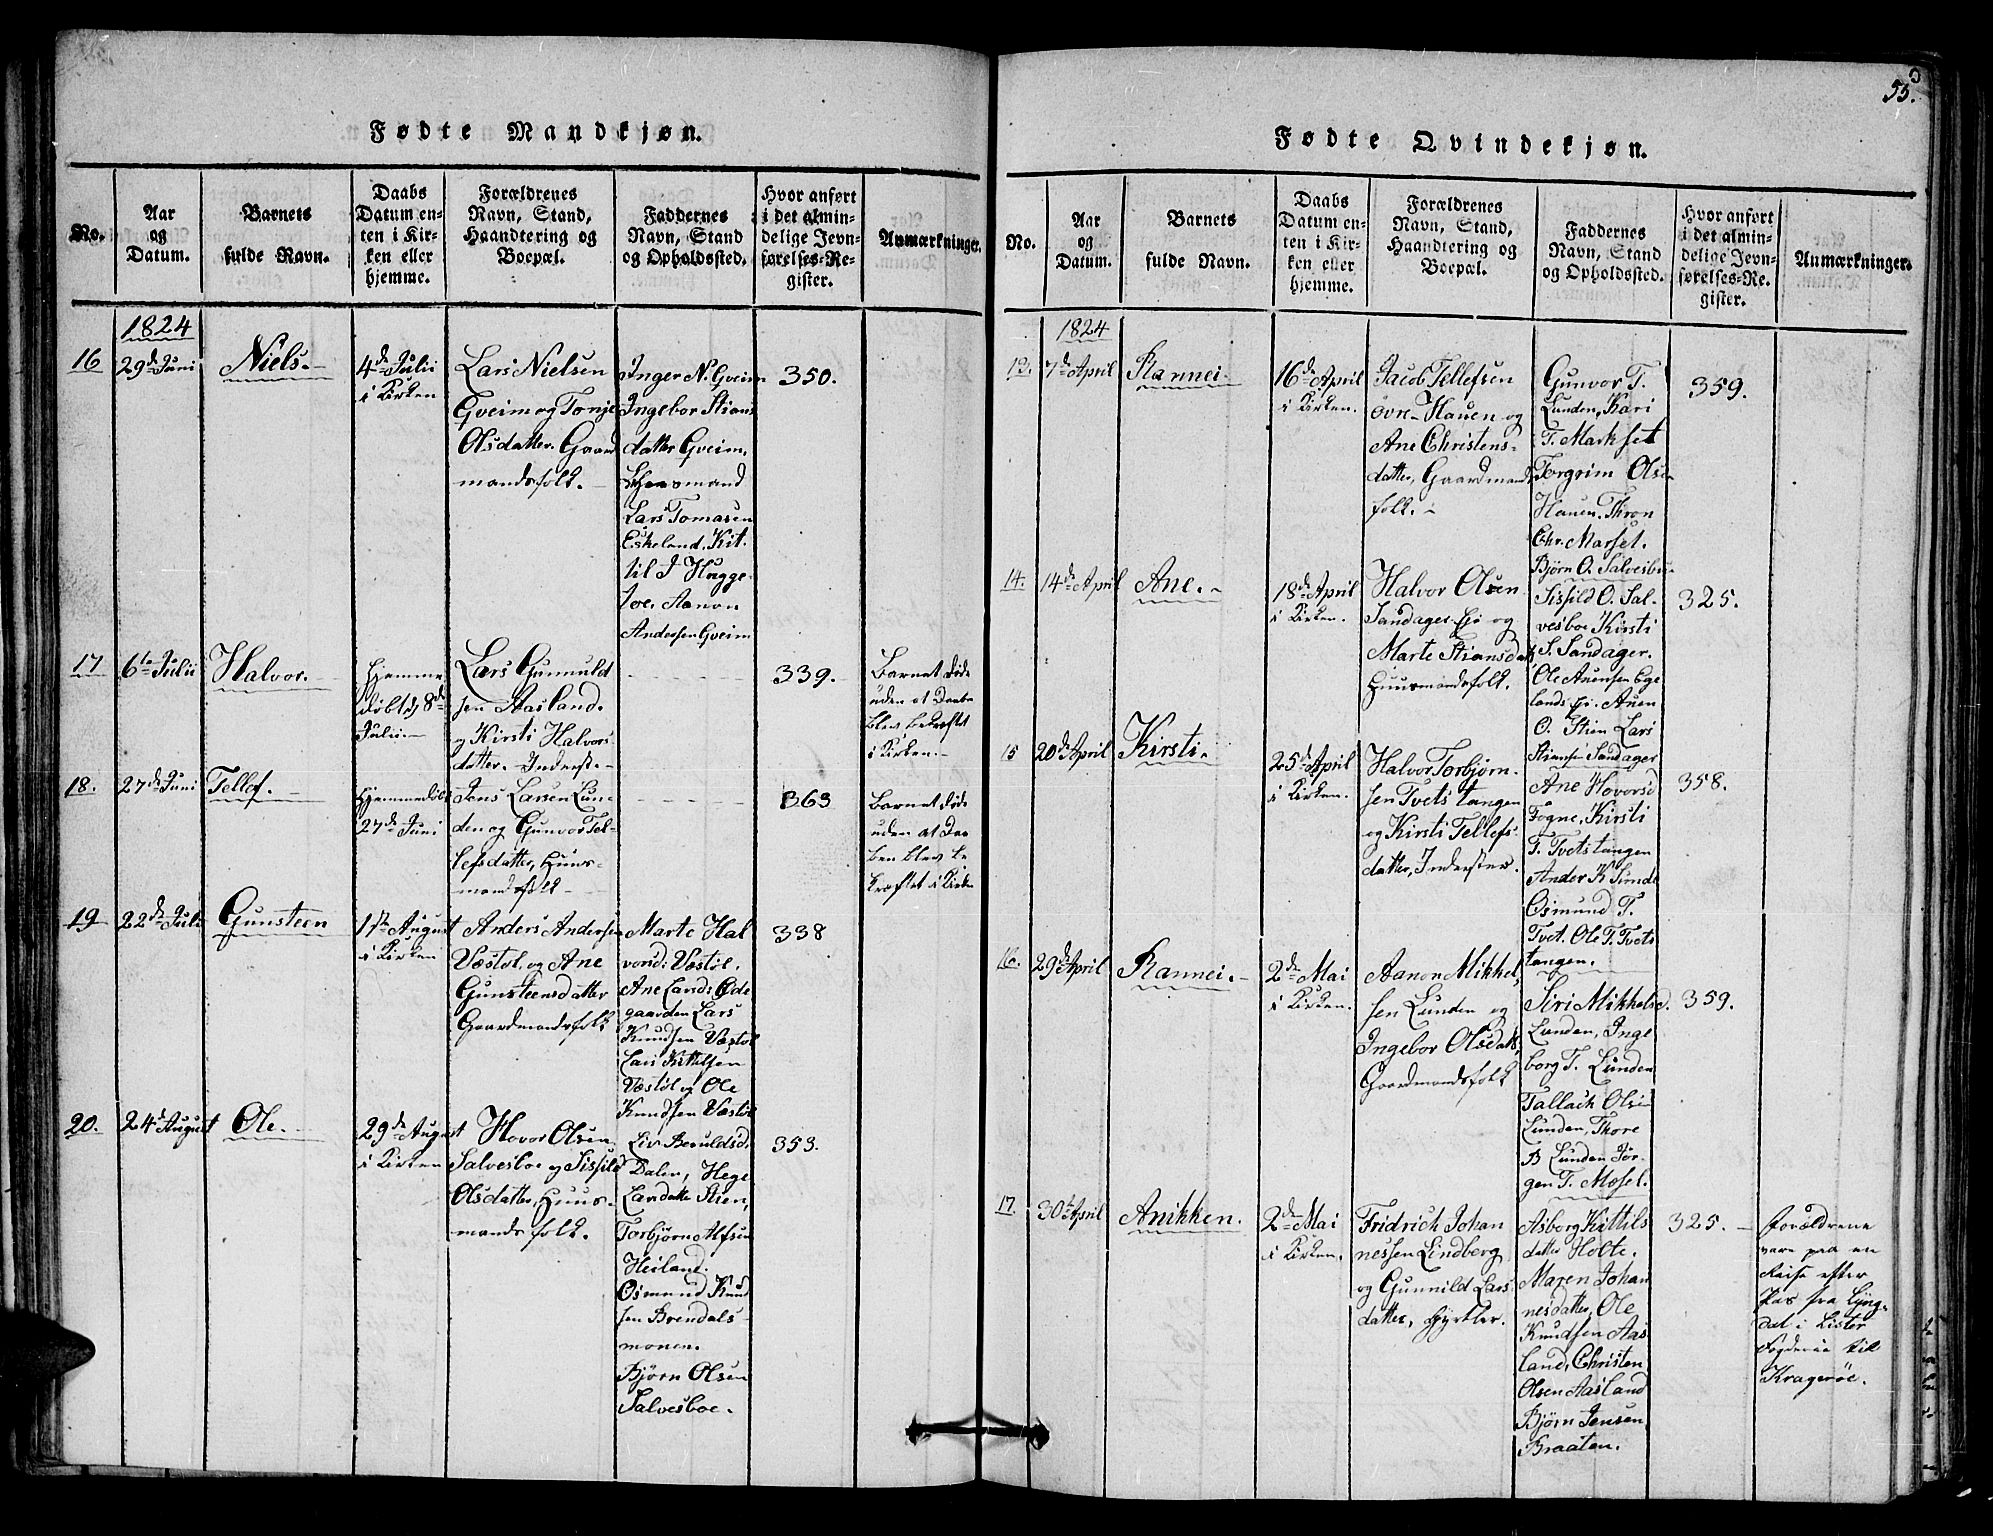 Fødte Mandkjøn.
No.
Aar
og
Datum.
Barnets
fulde Navn.
Daabs
Datum en-
ten i Kir-
ken eller
hjemme.
Forældrenes
Navn, Stand,
Haandtering og
Boepæl.
Faddernes
Navn, Stand
og Opholdssted.
Hvor anført
i det almin-
delige Jevn-
førelses-Re-
gister.
Anmærkninger.
1824
16
29de Juni
Niels.
4de Julii
i Kirken
Lars Nielsen
Gveim og Tonje
Olsdatter. Gaard
mandsfolk.
Inger N. Gveim
Ingebor Stians
datter Gveim,
Lars Tomasen
Eskeland, Kit-
til J Hugge-
Aanon
Andersen Gveim
350.
17
6te Julii
Halvor.
Hjemme
døbt d 8de
Julii
Lars Gunnuld
sen Aasland.
og Kirsti Halvors
datter. Inderst.
339.
Barnet døde
uden at Daaben
blev bekræftet
i Kirken.
18.
27de Juni
Tellef.
Hjemmedøbt
27de Juni
Jens Larsen Lun-
den og Gunvor Tel-
lefsdatter, Huus-
mandsfolk
363
Barnet døde
uden at Daa-
ben blev be
kræftet i Kirken
19
22de Juli
Gunsteen
1ste August
i Kirken
Anders Andersen
Væstøl, og Ane
Gunsteensdatter
Gaardmandsfolk
Marte Hal
vorsd: Væstøl.
Ane Larsd: Øde
gaarden Lars
Knudsen Væstøl
Lars Kittilsen
Væstøl og Ole
Knudsen Væstøl
338
20.
24de August
Ole.
29de August
i Kirken
Hovor Olsen
Salvesboe og Sissild
Olsdatter, Huus-
mandsfolk.
Liv Beruldsd.
Dalen, Hege
Larsdatter Stien,
Torbjørn Alfsen
Heiland.
Osmund Knud
sen Brendals-
monen.
Bjørn Olsen
Salvesboe.
353.
55.
Fødte Qvindekjøn.
No.
Aar
og
Datum.
Barnets
fulde Navn.
Daabs
Datum en-
ten i Kir-
ken eller
hjemme.
Forældrenes
Navn, Stand,
Haandtering og
Boepæl.
Faddernes
Navn, Stand
og Opholdssted.
Hvor anført
i det almin-
delige Jevn-
førelses-Re-
gister.
Anmærkninger.
1824
13.
7de April
Rannei.
16de April
i Kirken.
Jacob Tellefsen
øvre Hauen og
Ane Christens-
datter, Gaardmands
folk.
Gunvor T.
Lunden, Kari
T. Markset
Torgrim Olsen
Hauen. Thron
Chr. Marset.
359.
14.
14de April
Ane.
18de April
i Kirken.
Halvor Olsen
Sandager Eie og
Marte Stiansdatt,
Huusmandsfolk.
Bjørn O. Salvesboe
Sissild O. Sal-
vesboe Kirsti
S. Sandager.
Ole Auensen Ege
lands Ei. Auen
O. Stien Lars
Stiansen Sandager
325.
15
20de April
Kirsti.
25de April
i Kirken.
Halvor Torbjørn-
sen Tvetstangen
og Kirsti Tellefs-
datter, Inderster.
Ane Hovorsd
Fogne, Kirsti
T. Tvetstangen
Ander K Simde
Osmund T.
Tvet. Ole T. Tvets
tangen.
358.
16.
29de April
Rannei.
2de Mai
i Kirken.
Aanon Mikkel,
sen Lunden og
Ingebor Olsdatt,
Gaardmandsfolk
Siri Mikkelsd.
Lunden, Inge
borg T. Lunden
Tallack Olsen
Lunden, Thore
B Lunden Jør-
gen T. Mosel.
359.
17.
30te April
Anikken.
2de Mai
i Kirken.
Fridrich Johan
nessen Lindberg
og Gunnild Lars
datter, Gyrtler.
Asborg Kittils
datter Holte.
Maren Johan
nesdatter, Ole
Knudsen Aas
land, Christen
Olsen Aasland
Bjørn Jensen
Braaten.
325.
Forældrene
vare paa en
Reise efter
Pas fra Lyng-
dal i Lister
Fogderie til
Kragerøe.